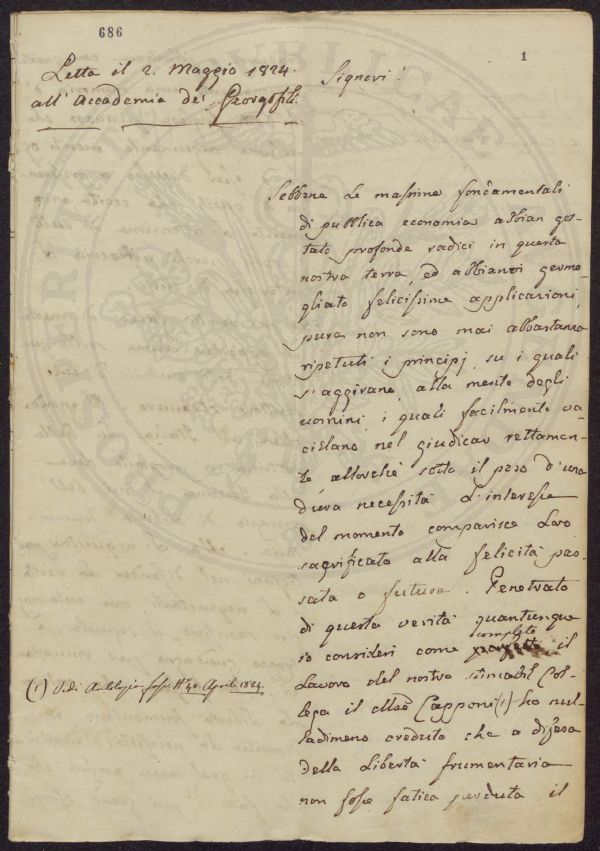 686
1
Letta il 2. Maggio 1824.
all'Accademia de' Georgofili.
Signori!
Sebbene le massime fondamentali
di pubblica economia abbian get-
tato profonde radici in questa
nostra terra, ed abbianvi germo-
gliato felicissime applicazioni,
pure non sono mai abbastanza
ripetuti i principj su i quali
s'aggirano, alla mente degli
uomini, i quali facilmente va-
cillano nel giudicar rettamen-
te allorchè sotto il peso d'una
dura necessità l'interesse
del momento comparisce loro
sagrificato alla felicità pas-
sata o futura. Penetrato
di questa verità quantunque
completo
io consideri come il
Lavoro del nostro stimabil Col-
lega il Capponi (1) ho nul-
ladimeno creduto che a difesa
della libertà frumentaria
non fosse fatica perduta il
(1) Vedi Antologia fasc. N.° 40. Aprile 1824.
PUBLICAE